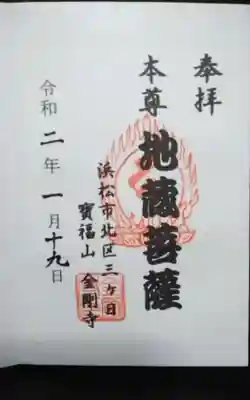 奉拝
本尊 地蔵菩薩
浜松市北区三ケ日
寶福山 金剛寺
令和二年一月十九日